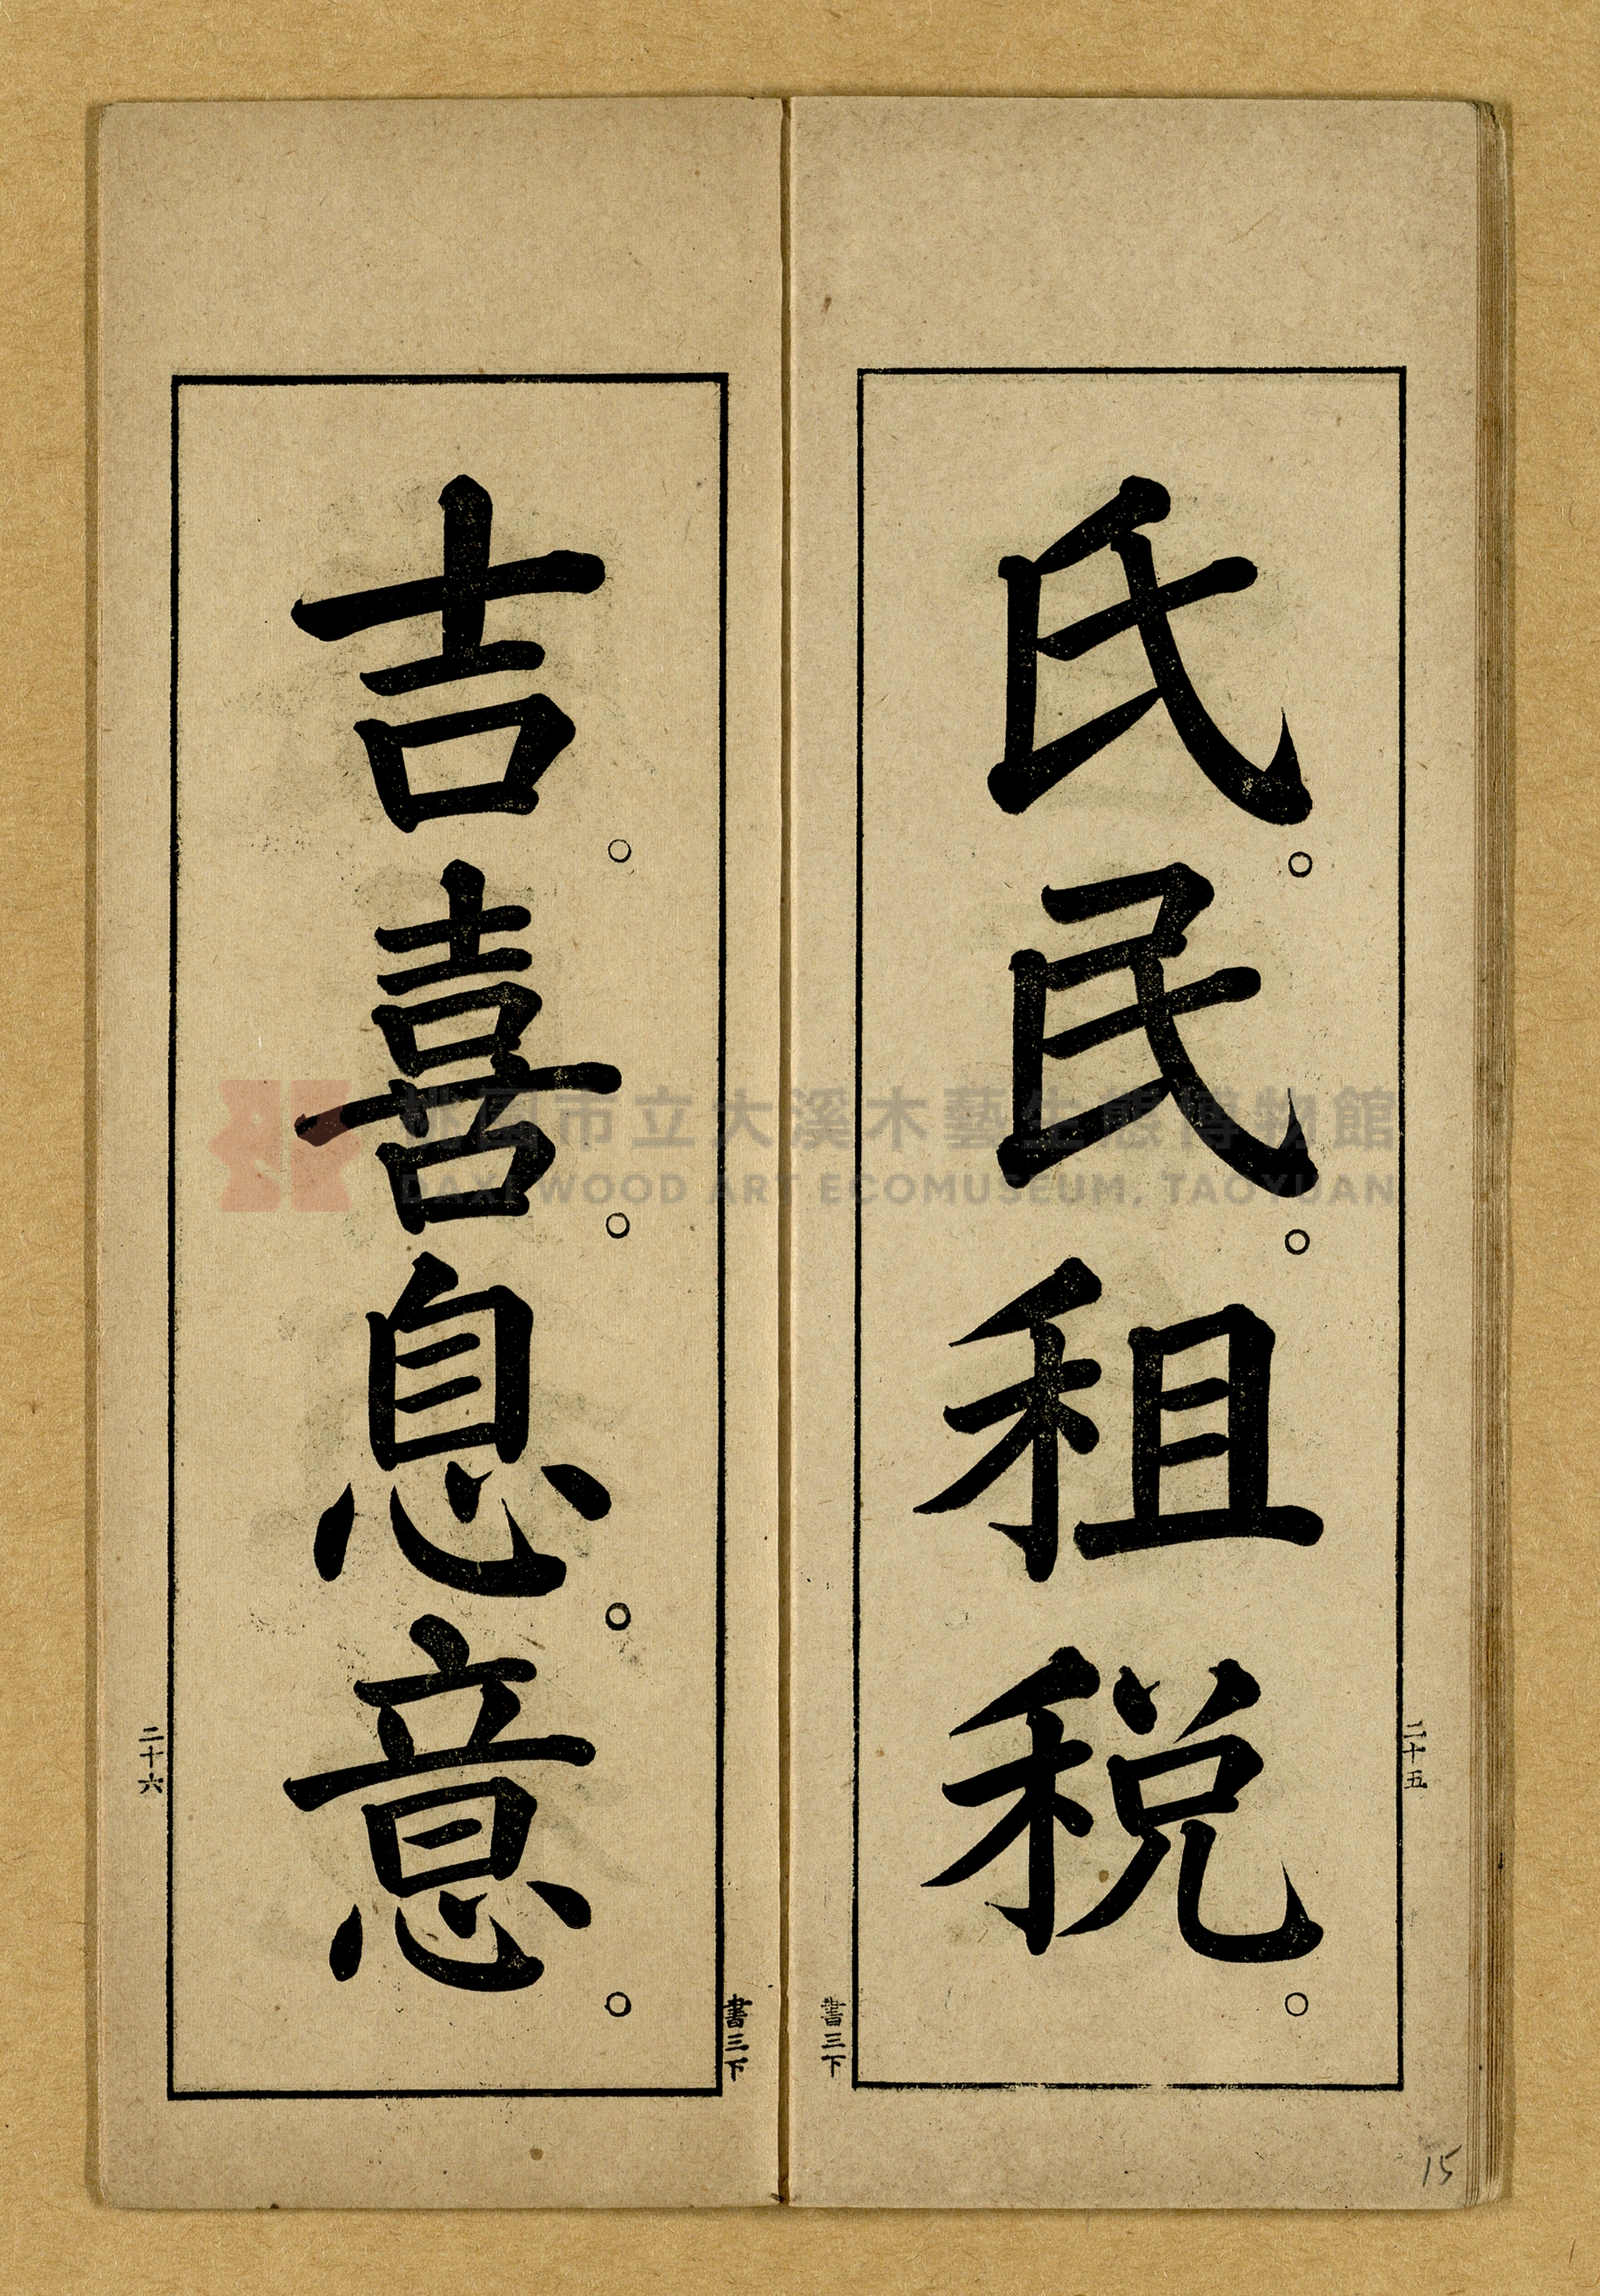 氏。民。租税。
二十五
書三下
吉。喜。息。意。
二十六
書三下
15
桃園市立大溪木藝生態博物館
DAXI WOOD ART ECOMUSEUM, TAOYUAN